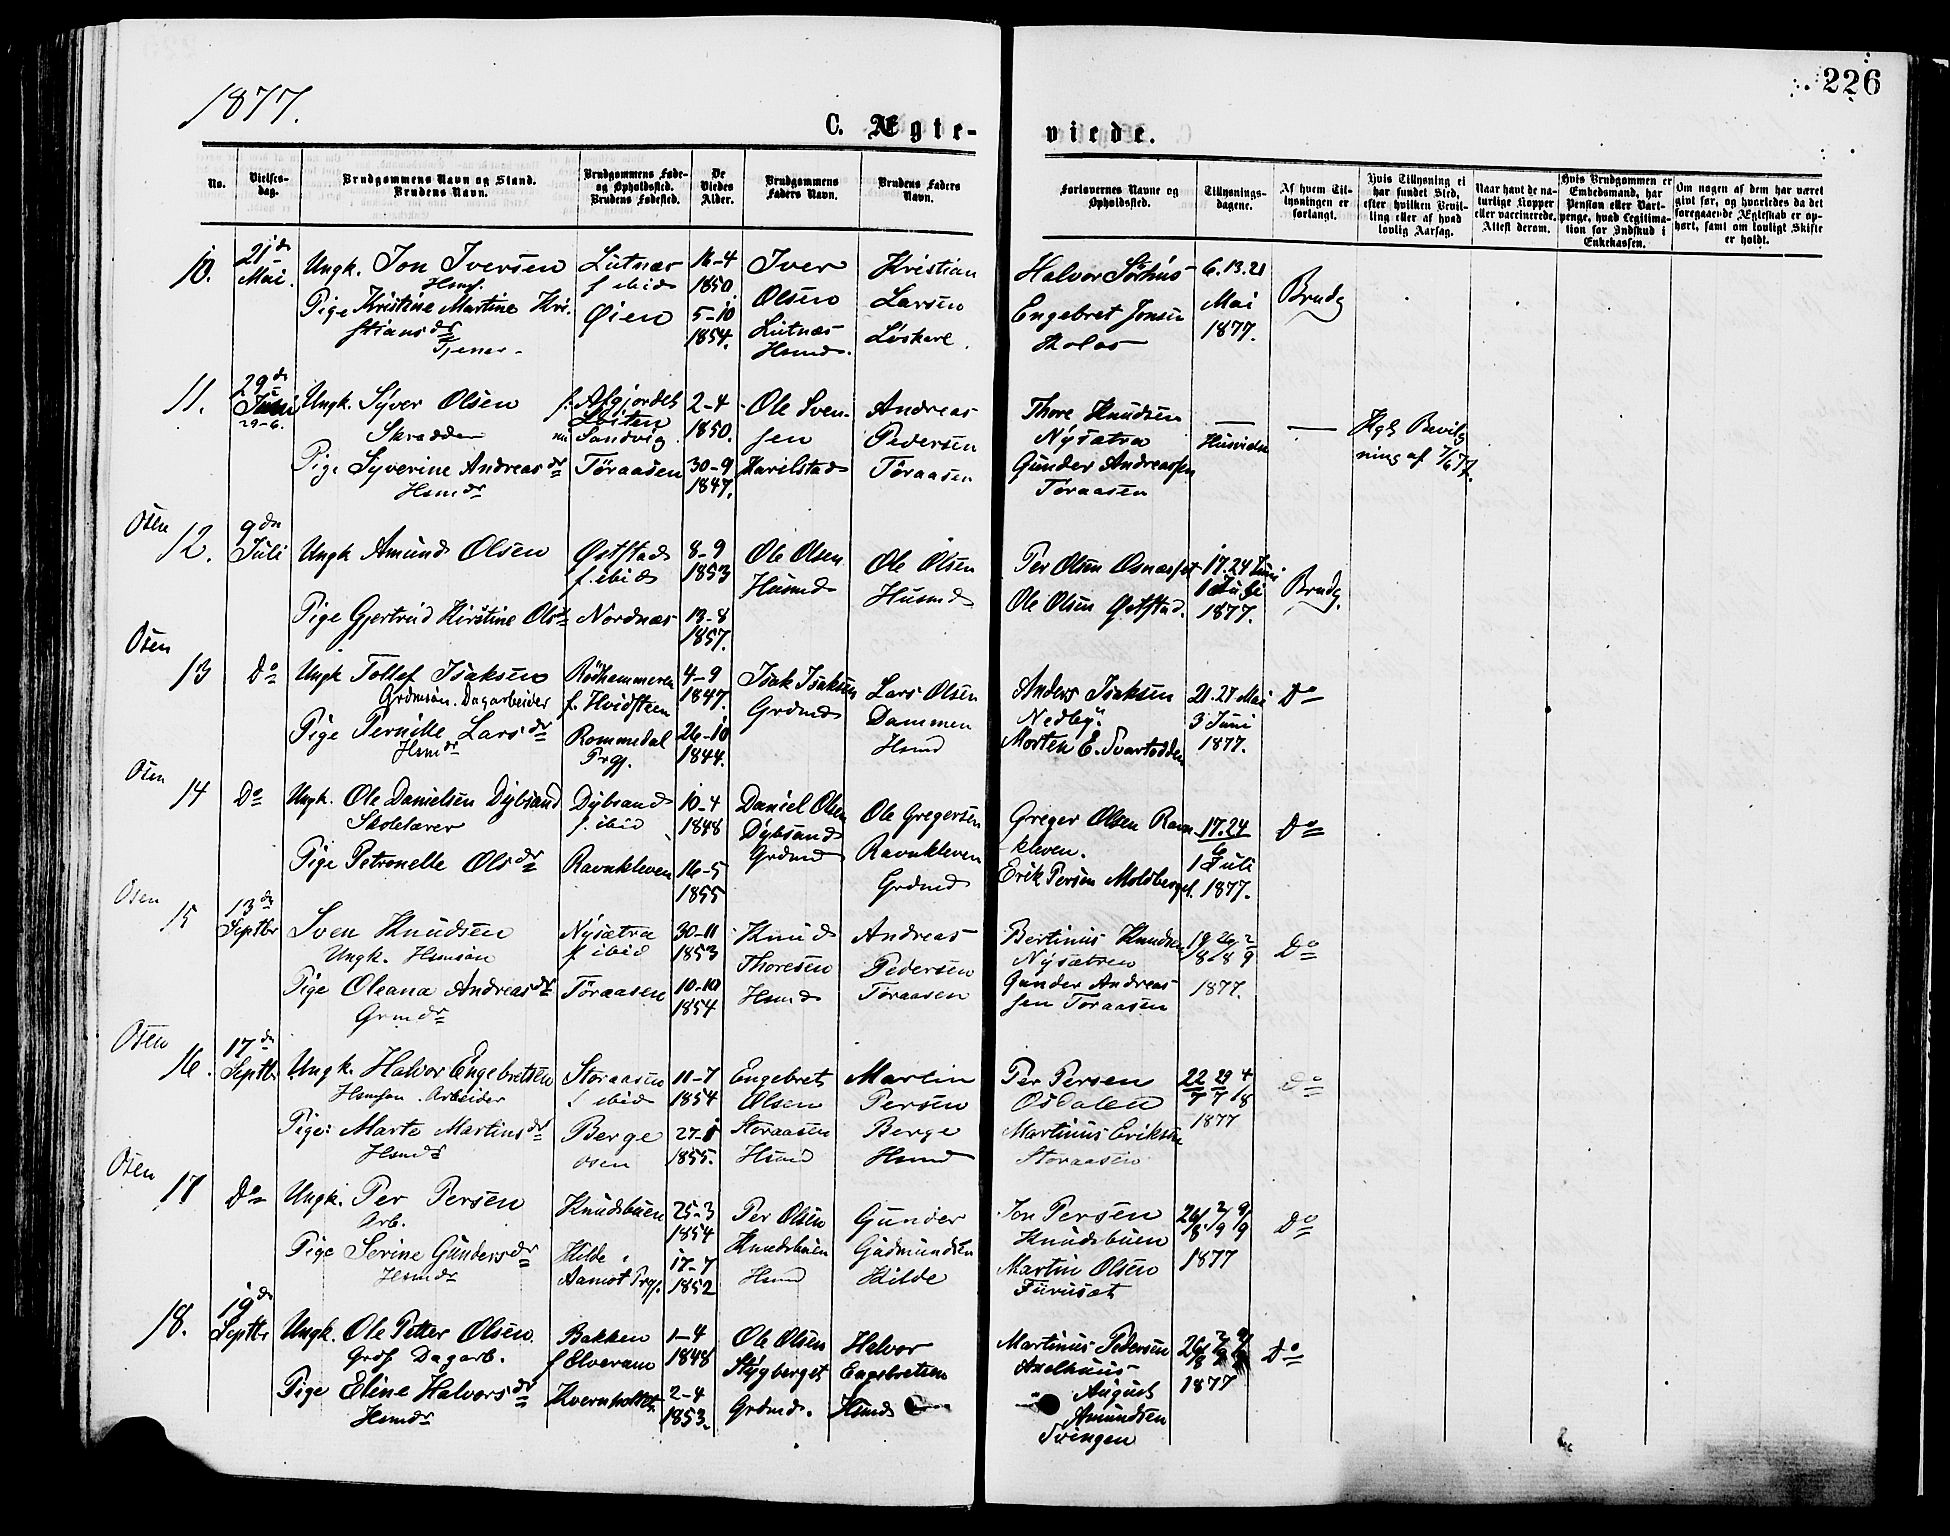 226
1877.
C. Ægte-
viede.
No.
Vielses-
dag.
Brudgommens Navn og Stand.
Brudens Navn.
Brudgommens Føde-
og Opholdssted.
Brudens Fødested.
De
Viedes
Alder.
Brudgommens
Faders Navn.
Brudens Faders
Navn.
Forlovernes Navne og
Opholdssted.
Tillysnings-
dagene.
Af hvem Til-
lysningen er
forlangt.
Hvis Tillysning ei
har fundet Sted,
efter hvilken Bevil-
ling eller af hvad
lovlig Aarsag.
Naar havt de na-
turlige Kopper
eller vaccinerede.
Attest derom.
Hvis Brudgommen er
Embedsmand, har
Pension eller Vart-
penge, hvad Legitima-
tion for Indskud i
Enkekassen.
Om nogen af dem har været
givt før, og hvorledes da det
foregaaende Ægteskab er op-
hørt, samt om lovligt Skifte
er holdt.
10.
21de
Mai.
Ungk. Jon Iversen
Hsmf.
Pige Kristine Martine Kri-
stiansdr
Tjener
Lutnæs
f ibid
Øien
16-4
1850.
5-10
1854.
Iver
Olsen
Lutnæs
Hsmd.
Kristian
Larsen
Løskarl.
Halvor Sørhus
Engebret Jonsen
Kolos
6.13.21
Mai
1877.
Brudg
11.
29de
Juni
29-6.
Ungk. Syver Olsen
Skrædder
Pige Syverine Andreasdr
Hsmdr
f. Afgjordet
Løiten
nu Sandvig
Töraasen
2-4
1850.
30-9
1847.
Ole Sven-
sen
Karilstad
Andreas
Pedersen
Töraasen
Thore Knudsen
Nysætra
Gunder Andreassen
Töraasen
—
Husviden
—
Kgl Bevilg
ning af 7/6 77.
Osen
12.
9de
Juli
Ungk Amund Olsen
Pige Gjertrud Kirstine Olsdr
Øststad
f. ibid
Nordnæs
8-9
1853
13-8
1857.
Ole Olsen
Husmd
Ole Olsen
Husmd
Per Olsen Osnæsset
Ole Olsen Øststad.
17.24 Juni
1 Juli
1877.
Brudg.
Osen
13
Do
Ungk Tollef Isaksen
Grdmsøn. Dagarbeider
Pige Pernille Larsdr
Hsmdr
Rødhammeren
f. Hvidsteen
Rommedal
Prgj.
4-9
1847.
26-10
1844.
Isak Isaksen
Grdmd
Lars Olsen
Dammen
Hsmd
Anders Isaksen
Nedby.
Morten E. Svartodden
21.27 Mai
3 Juni
1877.
Do
Osen
14
Do
Ungk. Ole Danielsen Dybsand
Skolelærer
Pige Petronelle Olsdr
Dybsand
f. ibid
Ravnkleven
10-4
1848
16-5
1855
Daniel Olsen
Dybsand
Grdmd
Ole Gregersen
Ravnkleven
Grdmd
Greger Olsen Ravn-
kleven.
Erik Persen Moldberget.
17.24
6
1 Juli
1877.
Do
Osen
15
13de
Septbr
Sven Knudsen
Ungk. Hsmsøn
Pige Oleana Andreasdr
Grmdr
Nysætra
f ibid
Töraasen
30-11
1853
10-10
1854
Knud
Thoresen
Hsmd
Andreas
Pedersen
Töraasen
Bertinus Knudsen
Nysætren
Gunder Andreas-
sen Töraasen
19/8 26/8 2/9
1877.
Do
Osen
16.
17de
Septbr
Ungk. Halvor Engebretsen
Hsmsøn. Arbeider
Pige: Marte Martinsdr
Hsmdr
Storaasen
f ibid
Berge
Osen
11-7
1854
27-1
1855.
Engebret
Olsen
Storaasen
Hsmd
Martin
Persen
Berge
Hsmd
Per Persen
Osdalen
Martinus Eriksen
Storaasen
22/7 29/7 4/8
1877
Do
Osen
17
Do
Ungk. Per Persen
Arb.
Pige Serine Gundersdr
Hsmdr
Knudsbuen
Kilde
Aamot Prgj.
25-3
1854
17-7
1852
Per Olsen
Knudsbuen
Hsmd
Gunder
Gudmundsen
Kilde
Jon Persen
Knudsbuen
Martin Olsen
Furuset
26/8 2/9 9/9
1877
Do
18.
19de
Septbr
Ungk. Ole Petter Olsen
Grdf Dagarb.
Pige Eline Halvorsdr
Hsmdr
Bakken
f Elverum
Kvernholtet
1-4
1848
2-4
1853.
Ole Olsen
Stygberget
Grdmd.
Halvor
Engebretsen
Hsmd
Martinus Pedersen
Axelhuus
August
Amundsen
Svingen
26/8 2/9 9/9
1877
Do